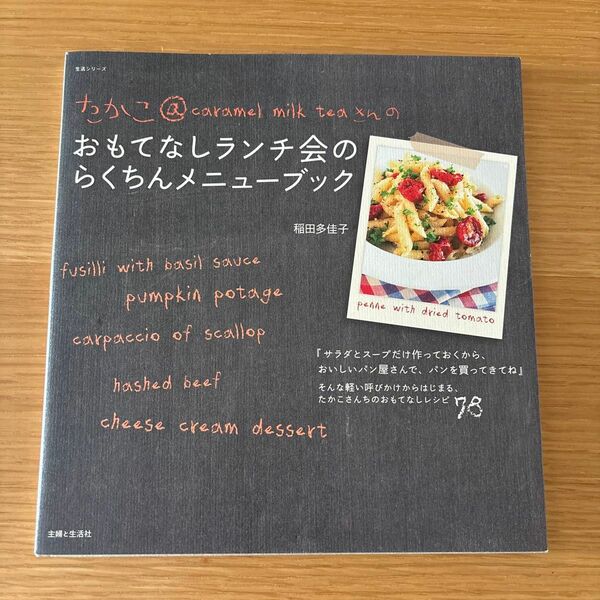 生活シリーズ
たかこ@caramel milk teaさんの
おもてなしランチ会の
らくちんメニューブック
稲田多佳子
fusilli with basil sauce
pumpkin potage
carpaccio of scallop
hashed beef
cheese cream dessert
penne with dried tomato
『サラダとスープだけ作っておくから、
おいしいパン屋さんで、パンを買ってきてね』
そんな軽い呼びかけからはじまる、
たかこさんちのおもてなしレシピ 78
主婦と生活社